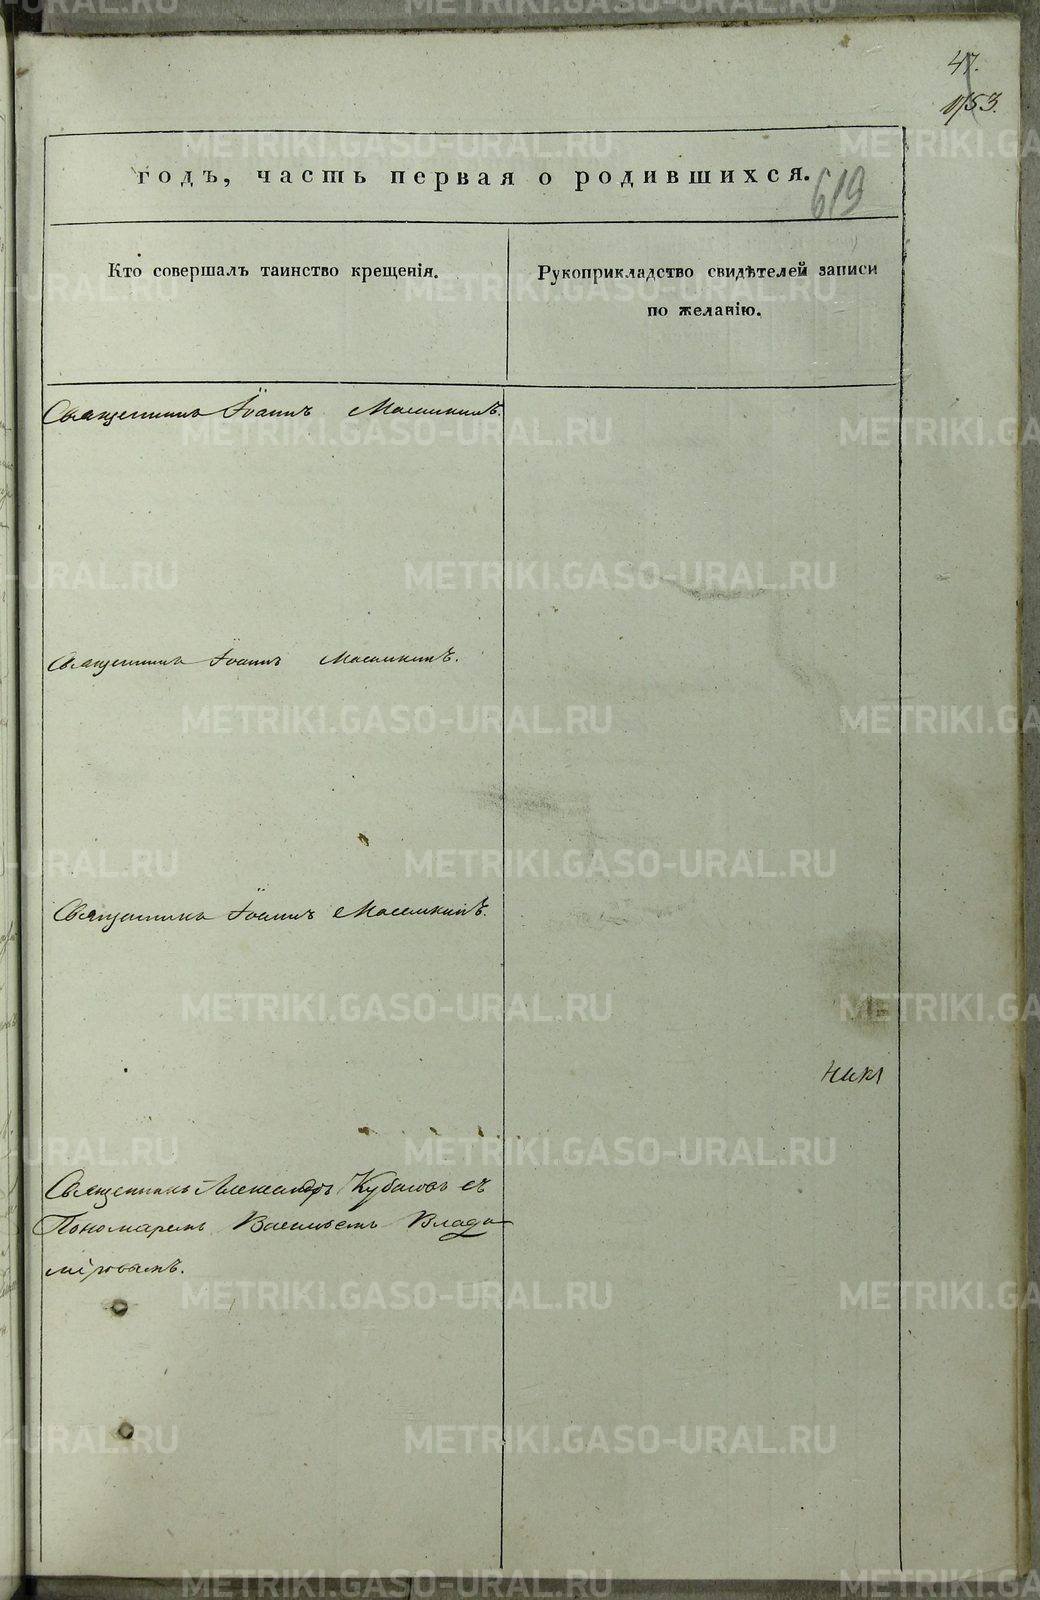 47.
153.
годъ, часть первая о родившихся.
619
Кто совершалъ таинство крещенія.
Рукоприкладство свидѣтелей записи
по желанію.
Священникъ Іоаннъ
Священникъ Іоаннъ
Священникъ Іоаннъ
Священникъ Александръ Кубасовъ съ
Пономаремъ Васильемъ Влади-
міровымъ.
METRIKI.GASO-URAL.RU